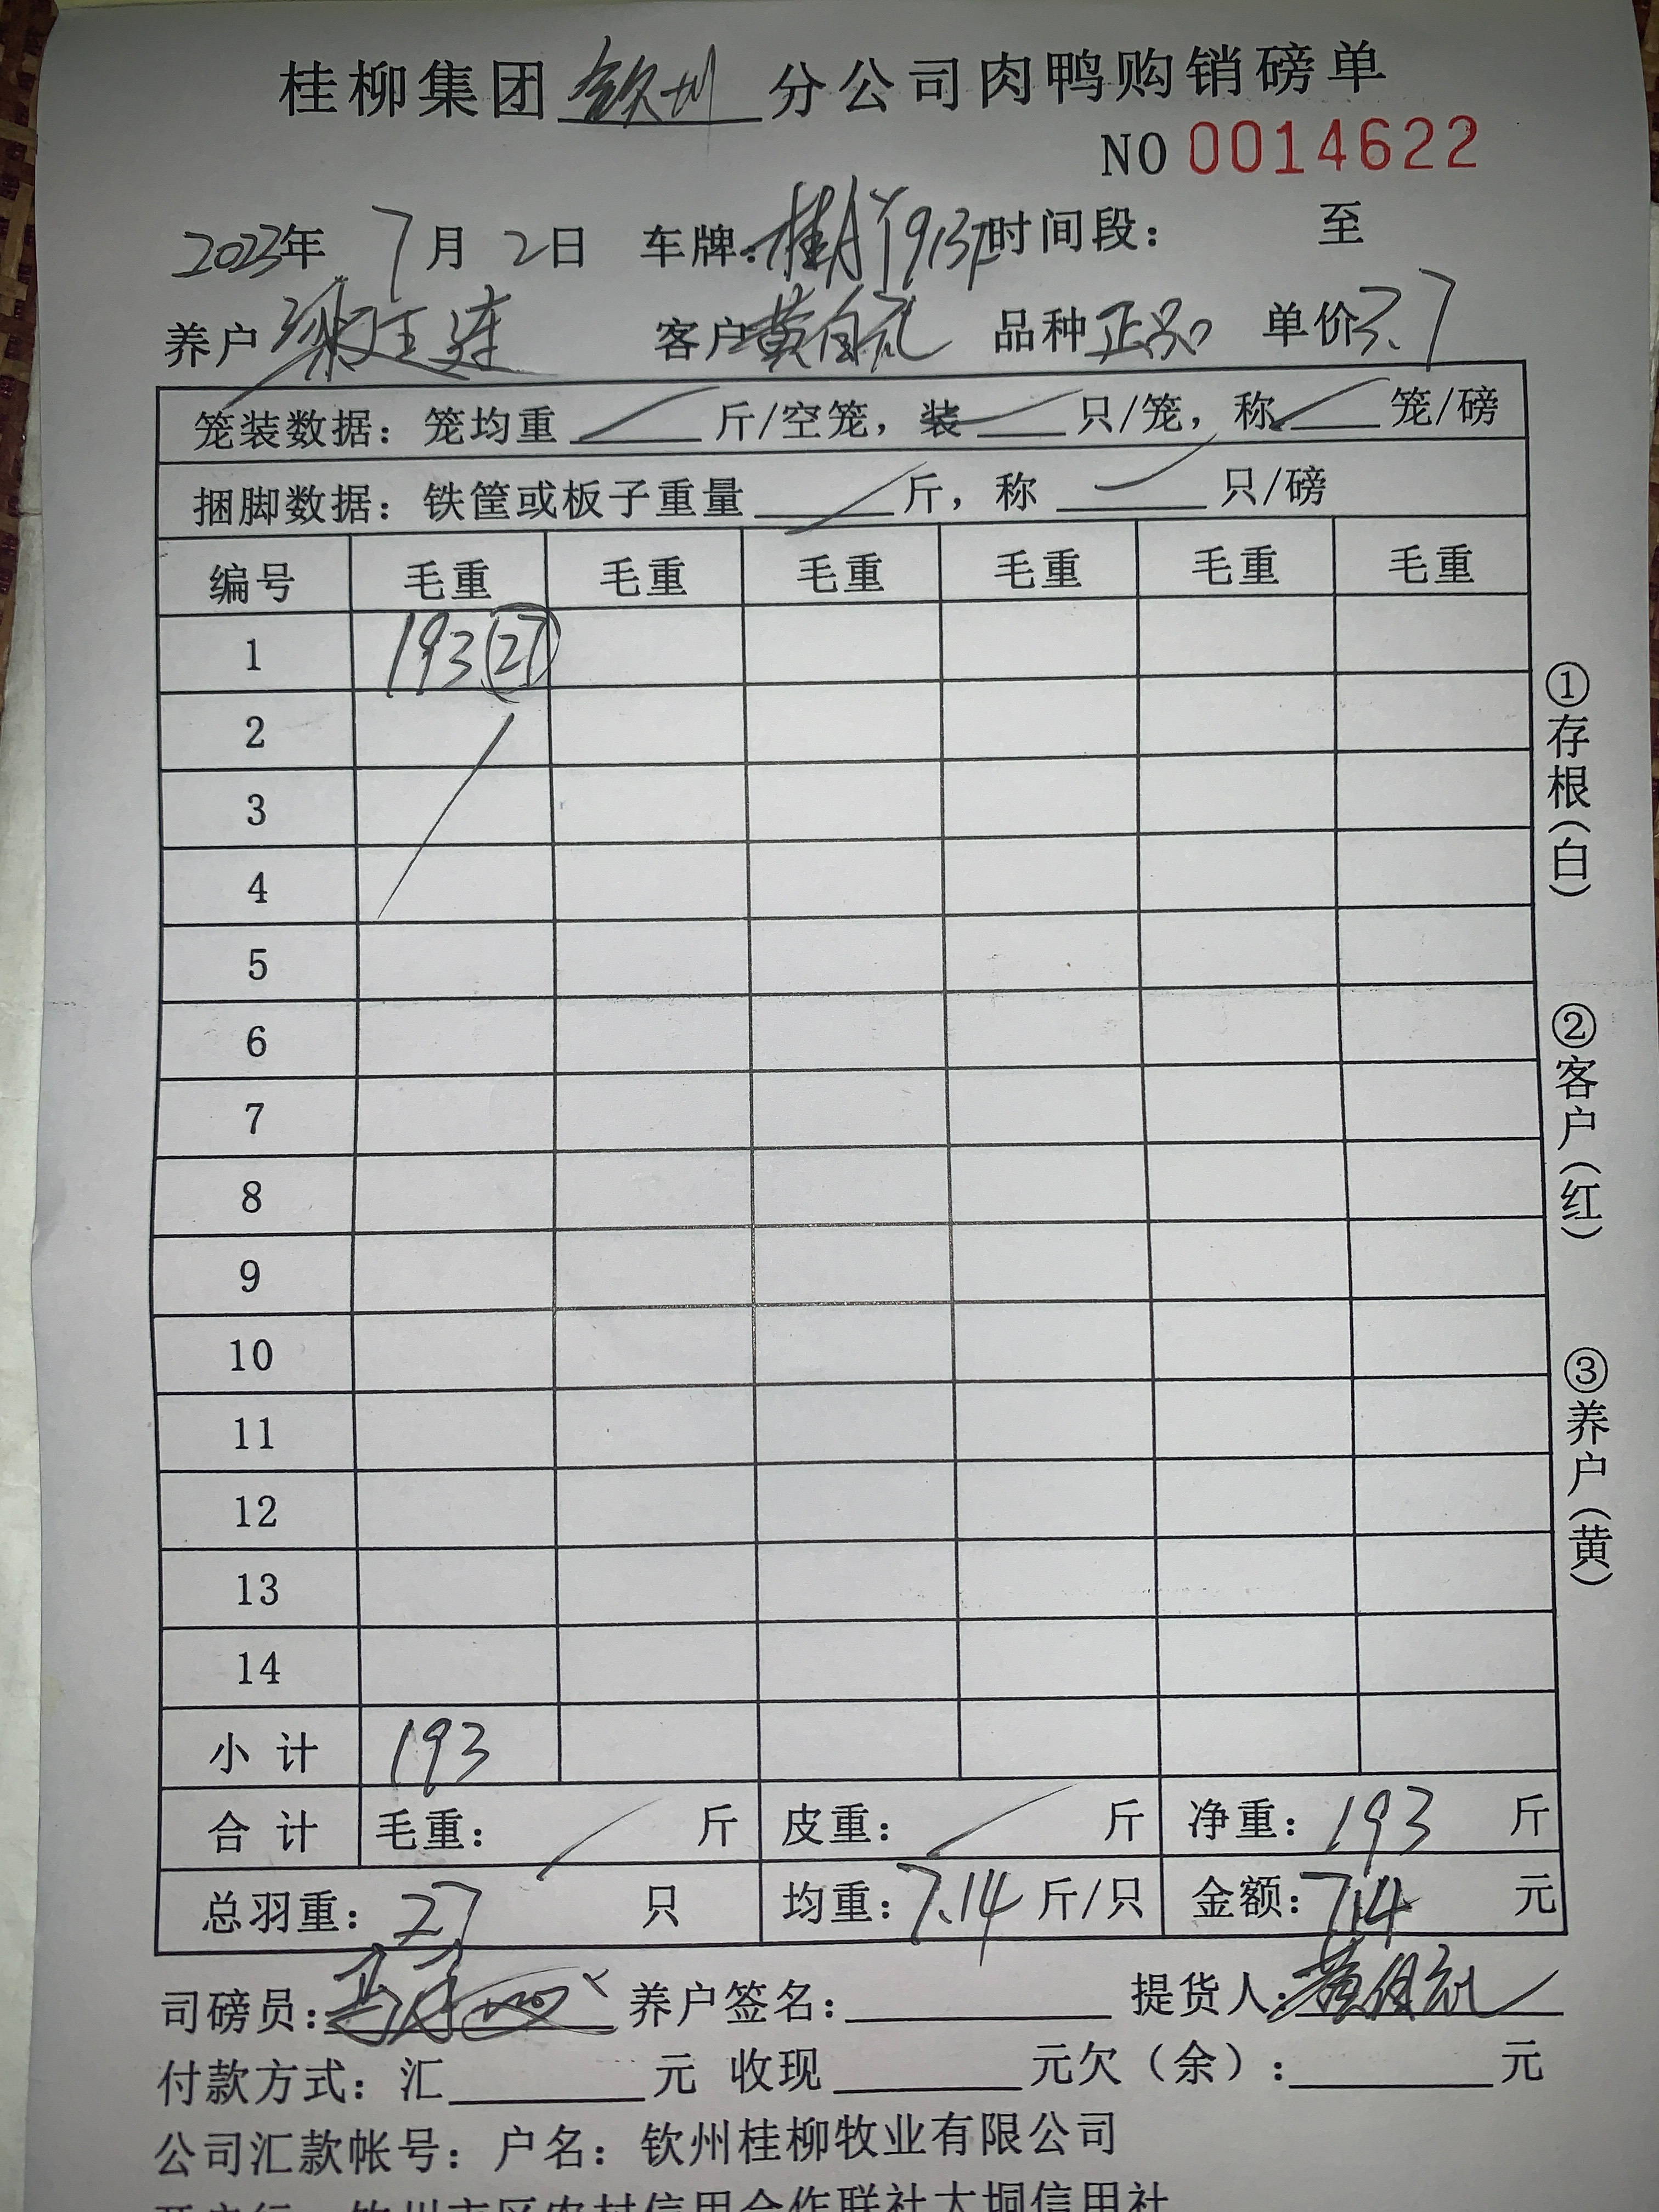 桂柳集团 钦州 分公司肉鸭购销磅单
NO 0014622
2023年 7月 2日 车牌: 桂A 时间段: 至
养户 客户 黄 品种 正品 单价 3.7
笼装数据: 笼均重 斤/空笼, 装 只/笼, 称 笼/磅
捆脚数据: 铁筐或板子重量 斤, 称 只/磅
编号 毛重 毛重 毛重 毛重 毛重 毛重
1 193 27
2
3
4
5
6
7
8
9
10
11
12
13
14
小 计 193
合 计 毛重: 斤 皮重: 斤 净重: 193 斤
总羽重: 27 只 均重: 7.14 斤/只 金额: 714 元
司磅员: 养户签名: 提货人: 黄
付款方式: 汇 元 收现 元欠(余): 元
公司汇款帐号: 户名: 钦州桂柳牧业有限公司
开户行: 钦州市区农村信用合作联社大垌信用社
①存根(白)
②客户(红)
③养户(黄)